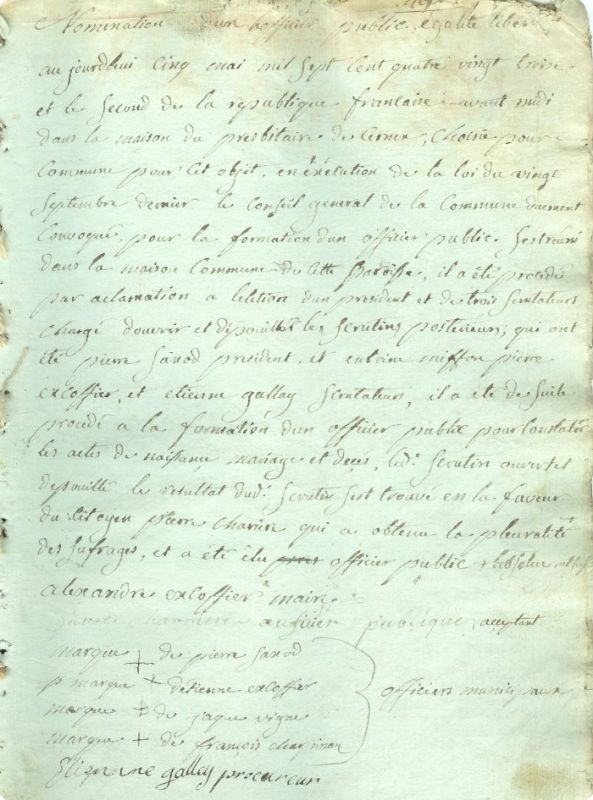 Nomination d'un hofficier public, egalité liberté
aujourdhui cinq mai mil sept cent quatre vingt treize
et le second de la republique francaise avant midi
dans la maison du presbitaire de cernex, choisie pour
commune pour cet objet, en éxécution de la loi du vingt
septembre dernier le conseil general de la commune duement
convoqué pour la formation dun officier public sestreuni
dans la maison commune de cette paroisse, il a été procédé
par aclamation a leletion dun president et de trois scrutateurs
chargé douvrir et dépouiller les scrutins posterieurs, qui ont
été pierre saxod president, et entoine miffon pierre
excoffier, et etienne gallay scrutateurs, il a été de suite
procédé a la formation dun officier public pour constater
les actes de naissance, mariage et deces, led. scrutin ouvert et
depouillé le resultat dud. scrutin sest trouvé en la faveur
du citoyen pierre chariere qui a obtenu la pleuralité
des sufrages, et a été élu officier public + absolue
alexandre excoffier maire
pierre charriere aufisier publique, acceptant
marque + de pierre saxod
p marque + detienne excoffier
marque + de jaque vigne officiers municipaux
marque + de françois
gallay procureur